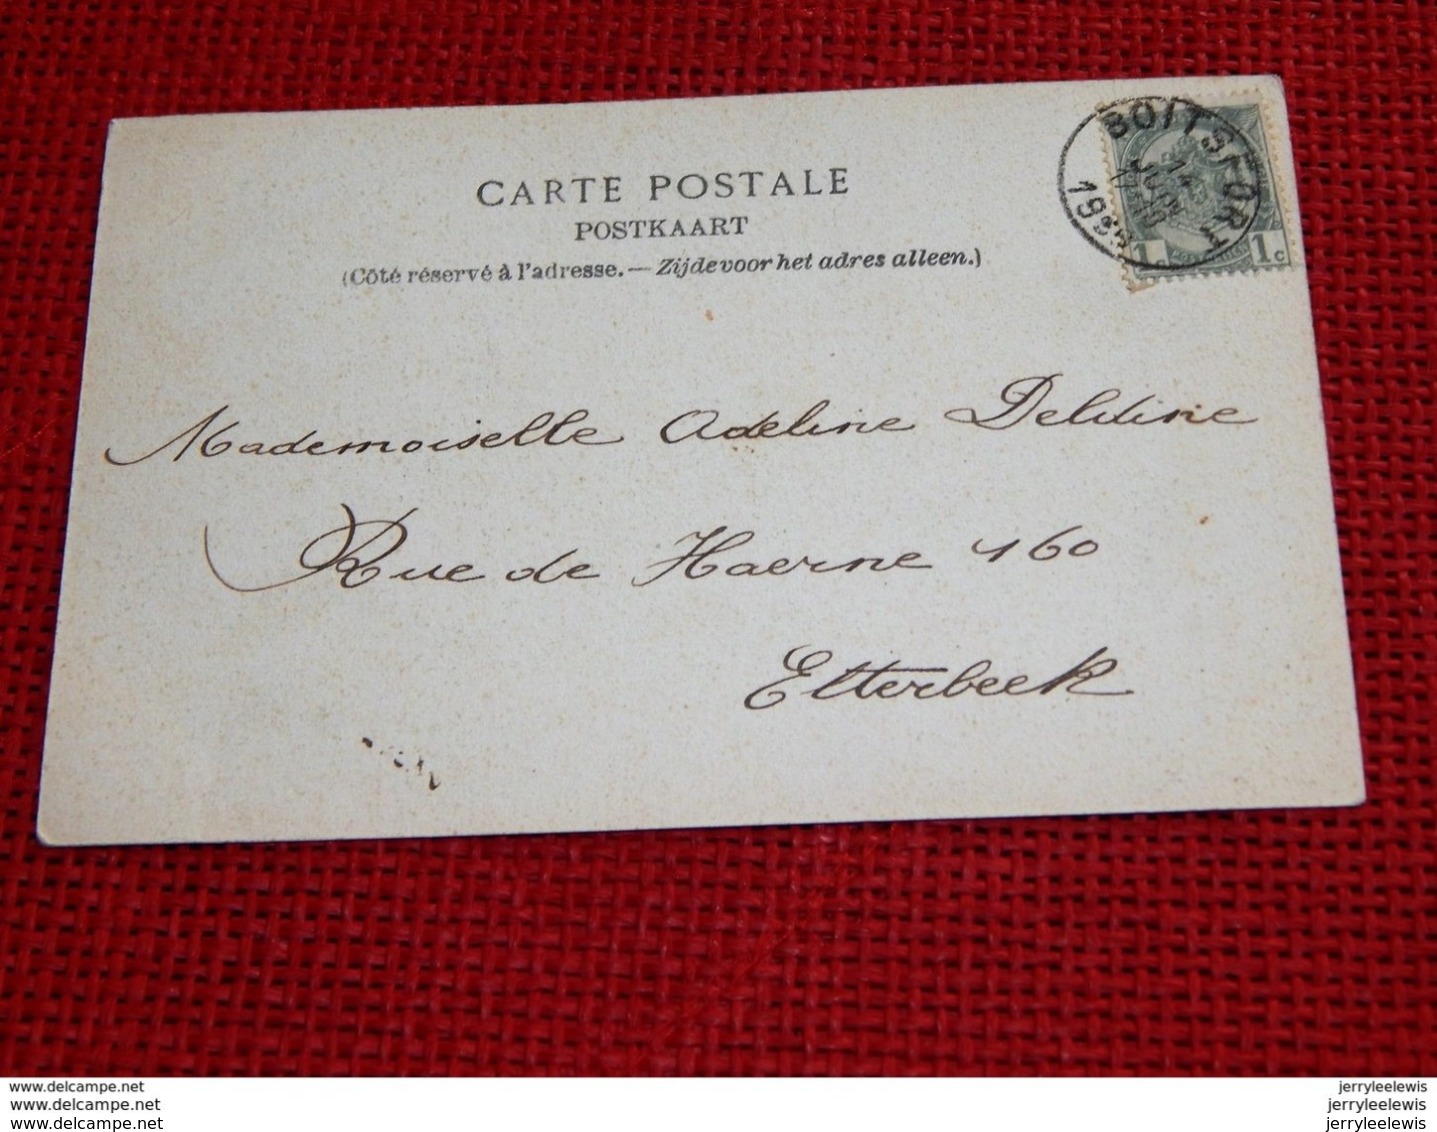 CARTE POSTALE
POSTKAART
(Côté réservé à l'adresse. — Zijde voor het adres alleen.)
BOITSFORT
14
JUIN
1 1
c
Mademoiselle Adeline
Rue de Haerne 160
Etterbeek
www.delcampe.net
www.delcampe.net
www.delcampe.net
jerryleelewis
jerryleelewis
jerryleelewis